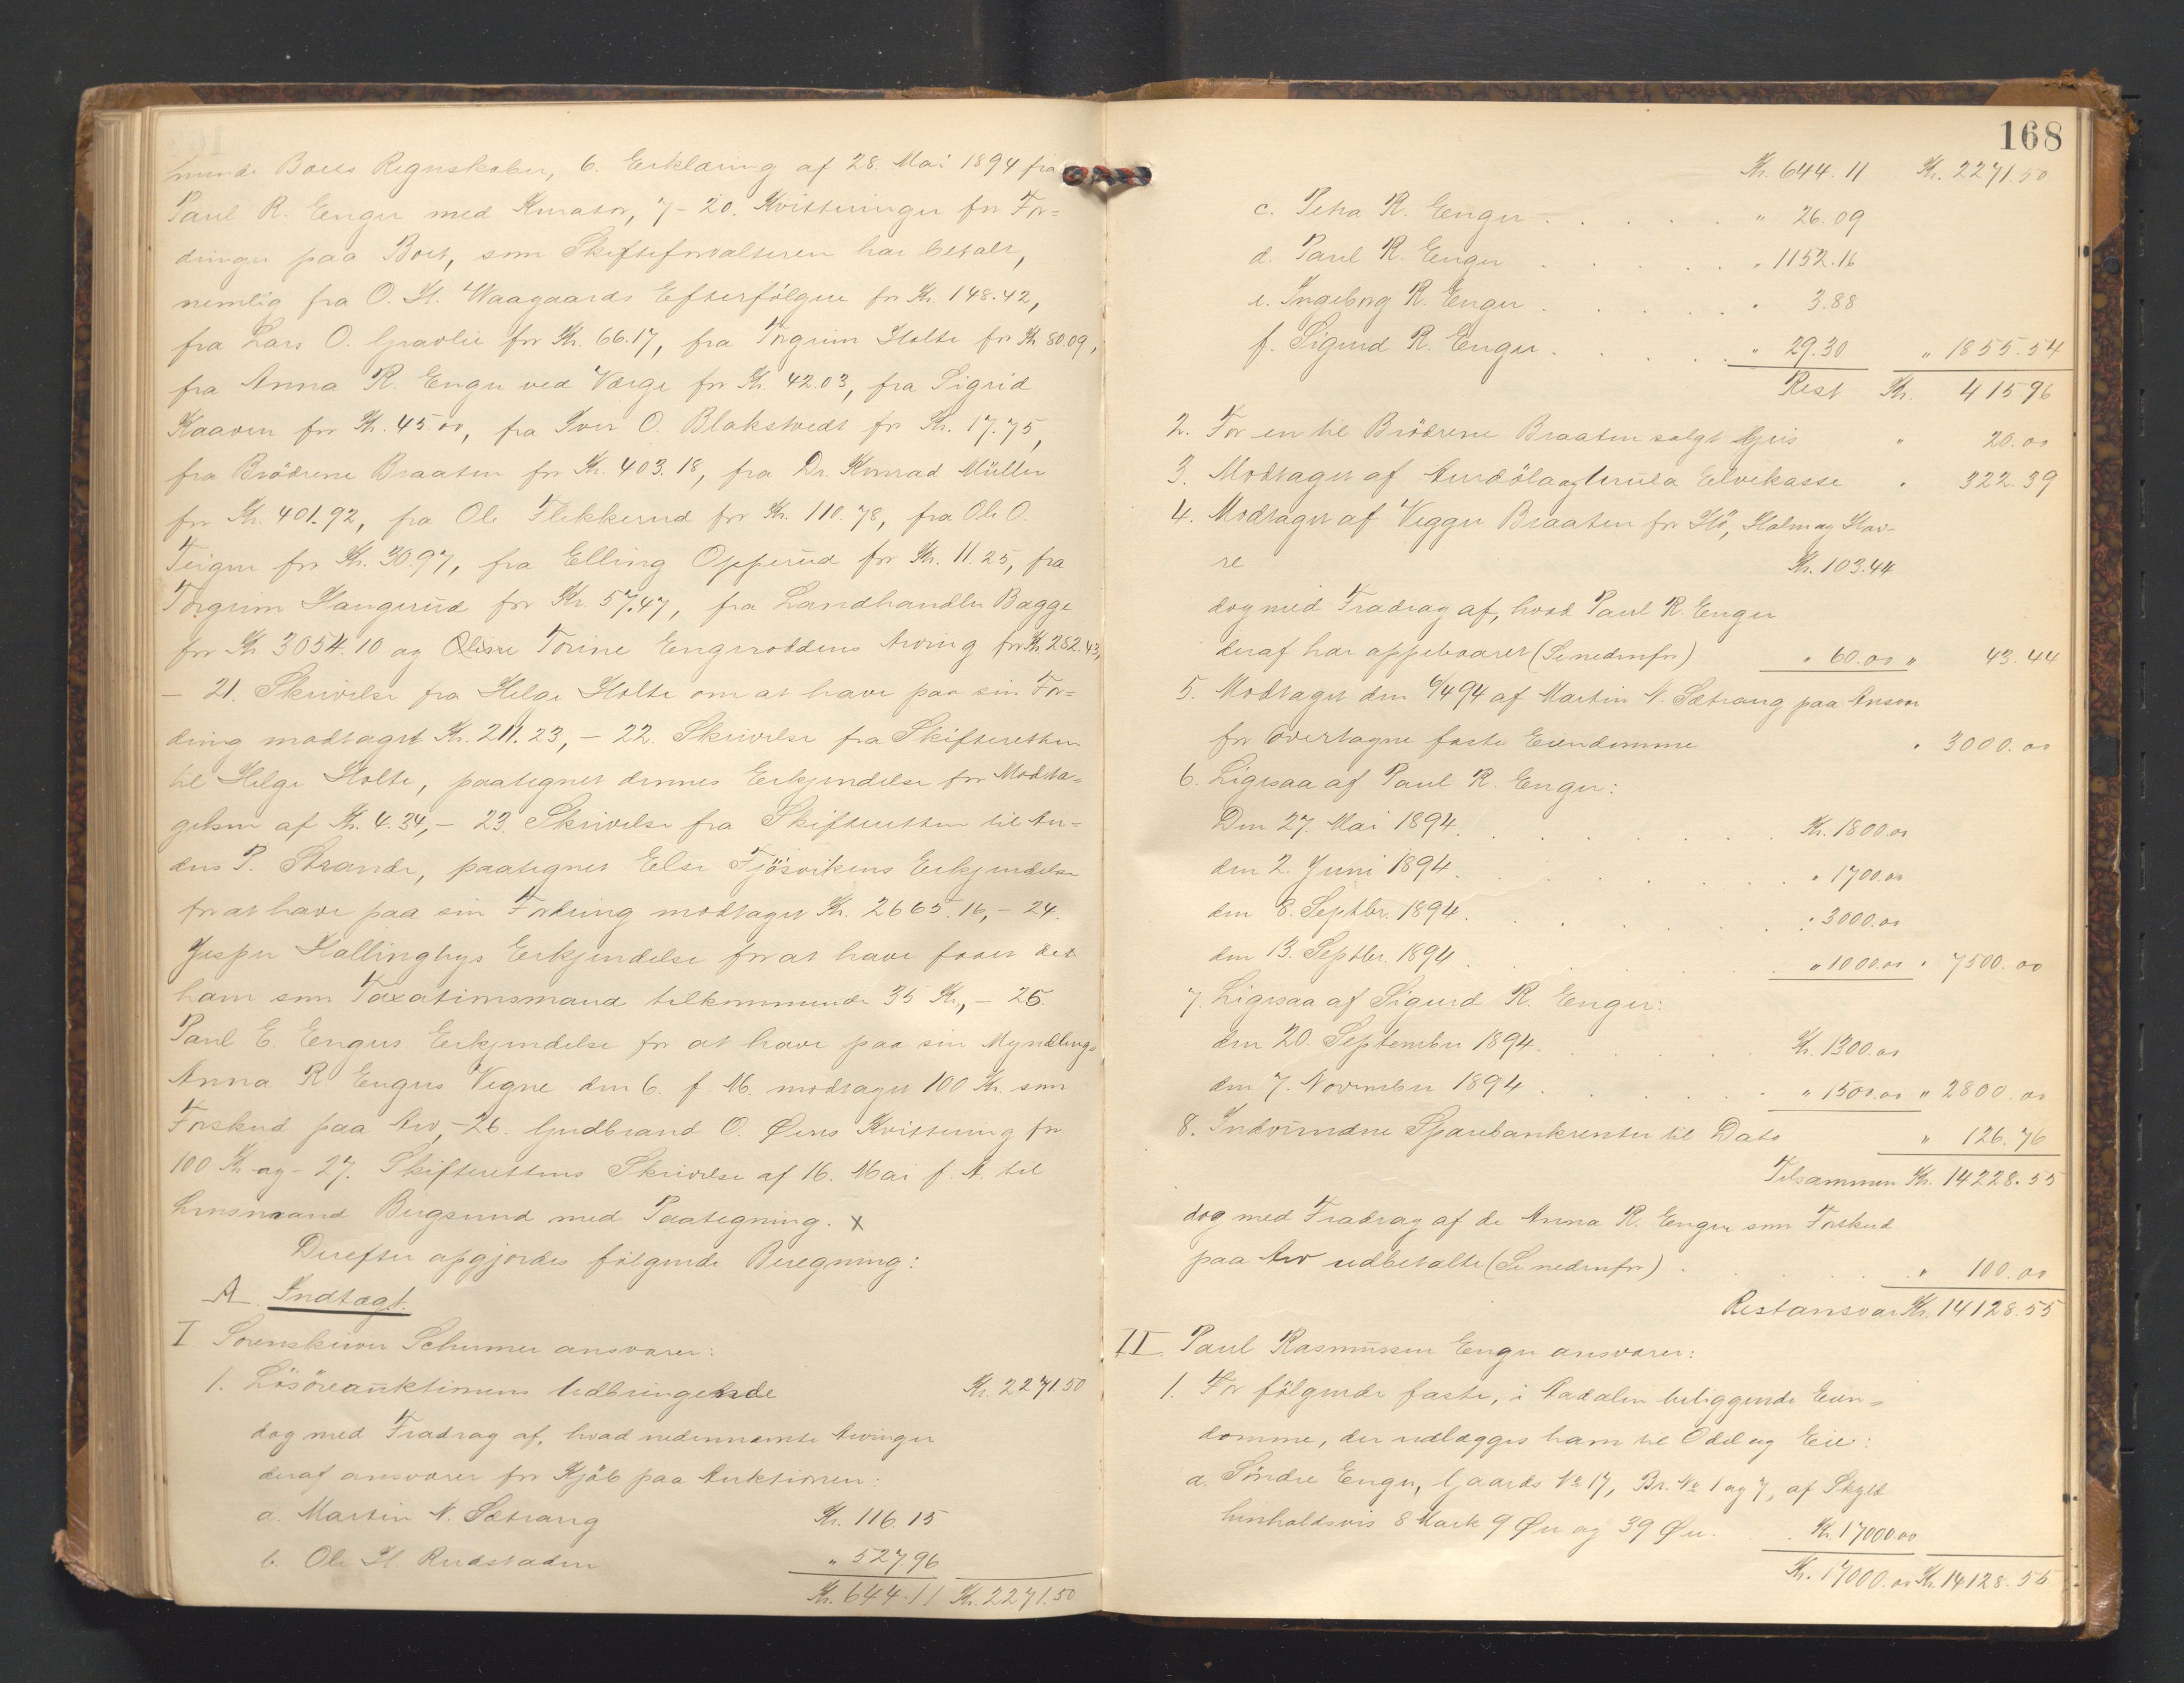 mende Boets Regnskaber, 6. Erklæring af 28. Mai 1894 fra
Paul R. Enger med Kurator, 7-20. Kvitteringer for For=
dringer paa Boet, som Skifteforvalteren har betalt,
nemlig fra O. H. Waagaards Efterfölgere for Kr. 148.42,
fra Lars O. Gravlie for Kr. 66.17, fra Torgrim Holte for Kr 80.09,
fra Anna R. Enger ved Værge for Kr. 42.03, fra Sigrid
Kaaven for Kr. 45.00, fra Iver O. Blakstvedt for Kr. 17.75,
fra Brödrene Braaten for Kr. 403.18, fra Dr. Konrad Müller
for Kr. 401.92, fra Ole Flikkerud for Kr. 110.78, fra Ole O.
Teigen for Kr. 30.97, fra Elling Opperud for Kr. 11.25, fra
Torgrim Haugerud for Kr. 57.47, fra Landhandler Bagge
for Kr. 3054.10 og Torine Engeroddens Arving for Kr 282.43,
- 21. Skrivelse fra Helge Holte om at have paa sin For=
dring modtaget Kr. 211.23, - 22. Skrivelse fra Skifteretten
til Helge Holte, paategnet dennes Erkjendelse for Modta=
gelsen af Kr. 4.34, - 23. Skrivelse fra Skifteretten til An=
ders P. Strande, paategnet Else Fjösvikens Erkjendelse
for at have paa sin Fordring modtaget Kr. 2665.16, - 24.
Jesper Hallingbys Erkjendelse for at have faaet det
ham som Taxationsmand tilkommende 35 Kr., - 25.
Paul E. Engers Erkjendelse for at have paa sin Myndlings
Anna R. Engers Vegne den 6. f. M. modtaget 100 Kr. som
Forskud paa Arv, - 26. Gudbrand O. Øens Kvittering for
100 Kr og - 27. Skifterettens Skrivelse af 16. Mai f. A. til
Lensmand Bergsund med Paategning. x
Derefter opgjordes følgende Beregning:
A. Indtægt.
I. Sorenskriver Schiumer ansvarer:
1. Lösöreauktionens Udbringende Kr. 2271.50
dog med Fradrag af, hvad nedennævnte Arvinger
deraf ansvarer for Kjöb paa Auktionen:
a. Martin N. Sætrang Kr. 116.15
b. Ole H. Rudstaden " 527.96
Kr. 644.11 Kr. 2271.50
168
Kr. 644.11 Kr. 2271.50
c. Petra R. Enger . . . . . " 26.09
d. Paul R. Enger . . . . . " 1152.16
e. Ingeborg R. Enger . . . . . " 3.88
f. Sigurd R. Enger . . . . . " 29.30 " 1855.54
Rest Kr. 415 96
2. For en til Brödrene Braaten solgt Gris " 20.00
3. Modtaget af Aurdöla og Urula Elvekasse " 322.39
4. Modtaget af Vegger Braaten for Hö, Halm og Hav-
re Kr. 103.44
dog med Fradrag af, hvad Paul R. Enger
deraf har oppebaaret (Se nedenfor) " 60.00 " 43.44
5. Modtaget den 6/4 94 af Martin N. Sætrang paa Ansvar
for overtagne faste Eiendomme " 3000.00
6. Ligesaa af Paul R. Enger:
Den 27. Mai 1894 . . . . . Kr. 1800.00
den 2. Juni 1894 . . . . . " 1700.00
den 8. Septbr. 1894 . . . . . " 3000.00
den 13. Septbr. 1894 . . . . . " 1000.00 " 7500.00
7. Ligesaa af Sigurd R. Enger:
den 20. September 1894 . . . . Kr. 1300.00
den 7. November 1894 . . . . . " 1500.00 " 2800.00
8. Indvundne Sparebankrenter til Dato " 126.76
Tilsammen Kr. 14228.55
dog med Fradrag af de Anna R. Enger som Forskud
paa Arv udbetalte (Se nedenfor) . . . . . " 100.00
Restansvar Kr. 14128.55
II. Paul Rasmussen Enger ansvarer:
1. For fölgende faste, i Aadalen beliggende Eien=
domme, der udlægges ham til Odel og Eie:
a. Söndre Enger, Gaards No 17, Br. No 1 og 7, af Skyld
henholdsvis 8 Mark 9 Øre og 39 Øre. . . Kr. 17000.00
Kr. 17000.00 Kr. 14128.55